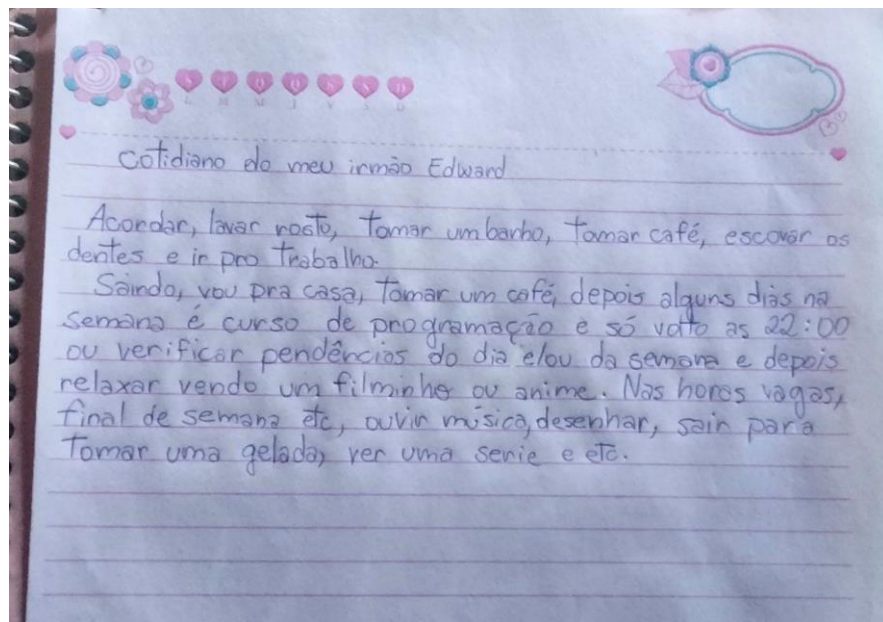 L M M J V S D
Cotidiano do meu irmão Edward
Acordar, lavar rosto, tomar um banho, tomar café, escovar os
dentes e ir pro trabalho.
Saindo, vou pra casa, tomar um café, depois alguns dias na
semana é curso de programação e só volto as 22:00
ou verificar pendências do dia e/ou da semana e depois
relaxar vendo um filminho ou anime. Nas horas vagas,
final de semana etc, ouvir música, desenhar, sair para
tomar uma gelada, ver uma serie e etc.